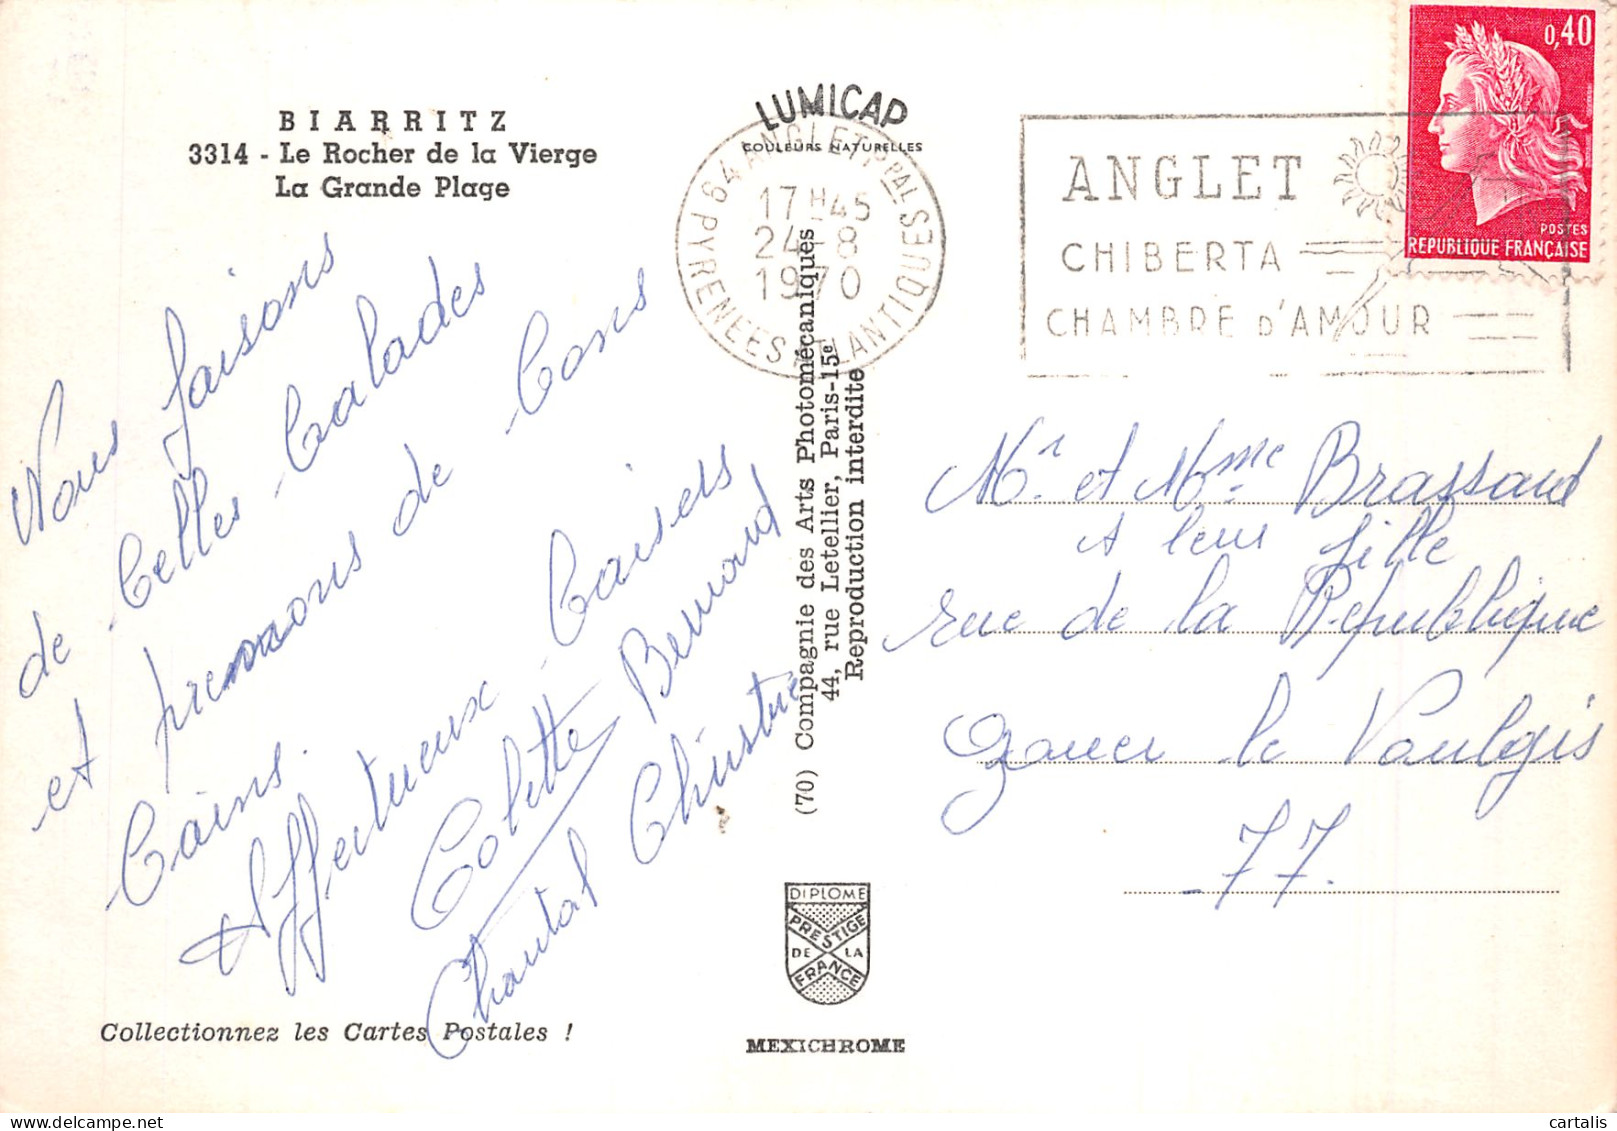 BIARRITZ
3314 - Le Rocher de la Vierge
La Grande Plage
Nous faisons
de belles balades
et prennons de bons
bains.
Affectueux baisers
Colette Bernard
Chantal Christine
Collectionnez les Cartes Postales !
LUMICAP
COULEURS NATURELLES
94 ANGLET PPAL
17H45
24-8
1970
PYRENEES ATLANTIQUES
(70) Compagnie des Arts Photomécaniques
44, rue Letellier, Paris-15e
Reproduction interdite
DIPLOME
PRESTIGE
DE LA
FRANCE
MEXICHROME
ANGLET
CHIBERTA
CHAMBRE D'AMOUR
0,40
POSTES
REPUBLIQUE FRANÇAISE
Mr. et Mme Brassaud
et leur fille
rue de la République
Gouer le Vaulgis
77.
cartalis